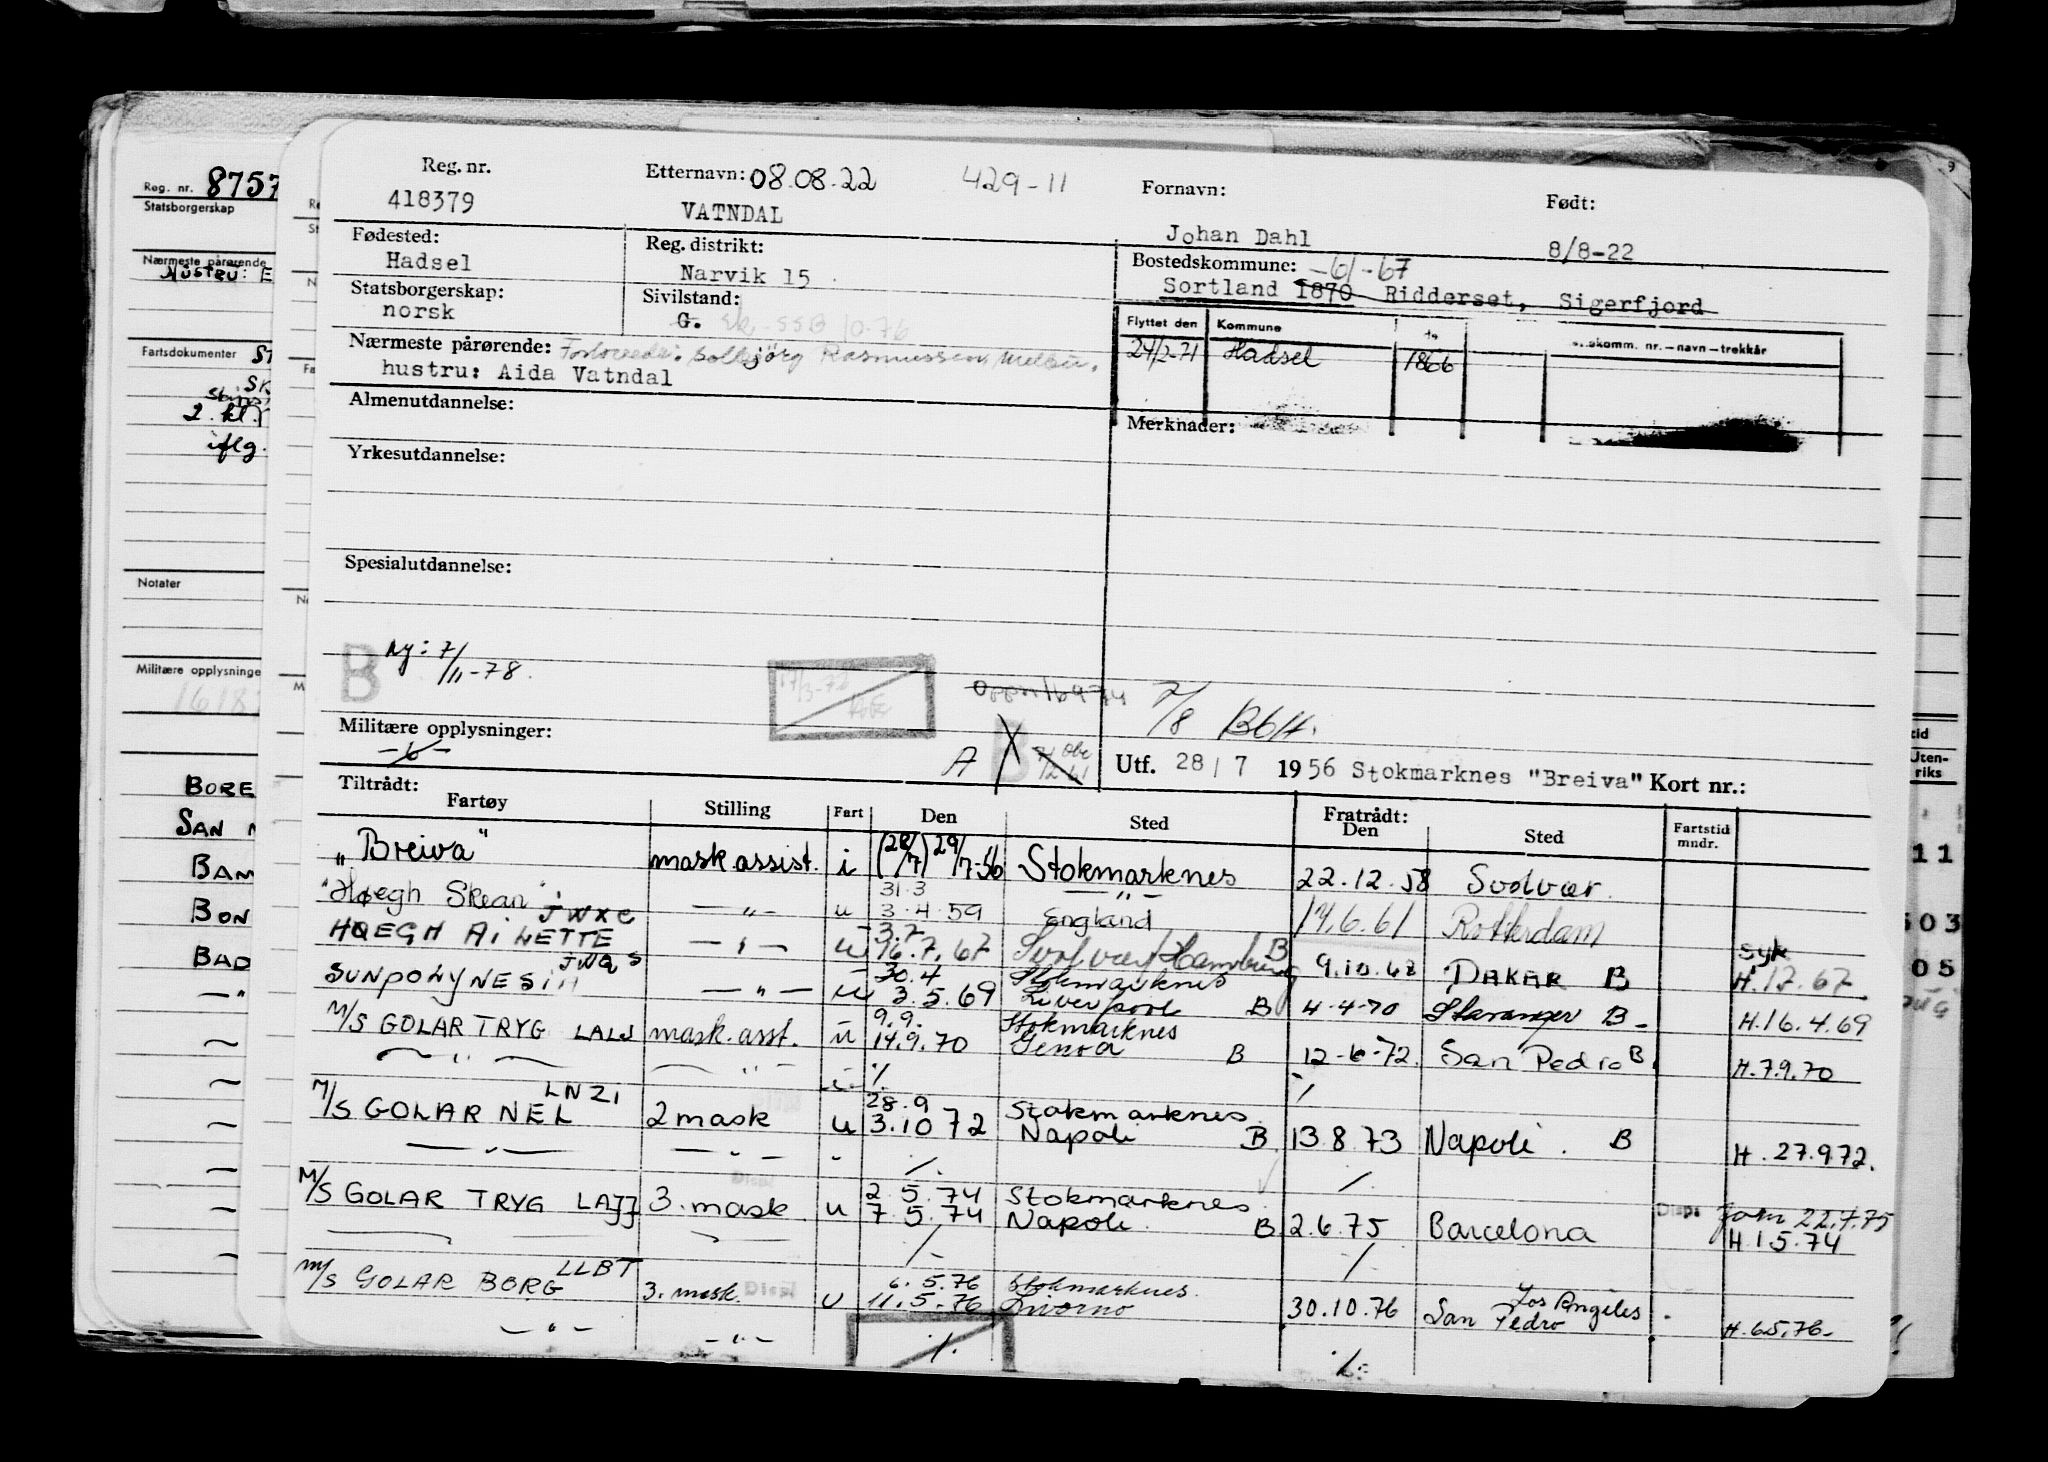 Reg. nr. 8757
Statsborgerskap
Nærmeste pårørende
Hustru: E
Fartsdokumenter
2. kl.
iflg.
Notater
Militære opplysninge
BORE
SAN
BAM
BON
BAD
Reg. nr. Etternavn: 08.08.22 429-11 Fornavn: Født:
418379 VATNDAL Johan Dahl 8/8-22
Fødested: Reg. distrikt: Bostedskommune: -61-67
Hadsel Narvik 15 Sortland 1870 Ridderset, Sigerfjord
Statsborgerskap: Sivilstand:
norsk G. Ek-SSB 10-76
Flyttet den Kommune komm. nr.-navn-trekkår
24/2-71 Hadsel 1866
Nærmeste pårørende: Forlovede: Solbjörg Rasmussen, Melbu.
hustru: Aida Vatndal
Almenutdannelse: Merknader:
Yrkesutdannelse:
Spesialutdannelse:
B Ny: 7/11-78
17/3-72
7/8 BbH.
Militære opplysninger:
A B
Utf. 28 / 7 1956 Stokmarknes "Breiva" Kort nr.:
Tiltrådt: Fratrådt:
Fartøy Stilling Fart Den Sted Den Sted Fartstid mndr.
"Breiva" mask assist. i (28/7) 29/7-56 Stokmarknes 22.12.58 Svolvær.
31.3 — " —
"Høegh Skean" JWXC — " — u 3.4.59 England 17.6.61 Rotterdam
3.7
HØEGH AILETTE JWQS — " — u 16.7.67 Svolvær/Hamburg B 9.10.67 DAKAR B syk H.12.67
30.4 Stokmarknes
SUNPOLYNESIA — " — u 3.5.69 Liverpool B 4-4-70 Stavanger B - H.16.4.69
9.9. Stokmarknes
M/S GOLAR TRYG LAJJ mask. asst. u 14.9.70 Genoa B 12-6-72. San Pedro B. H.7.9.70
— " — — " — ./. ./.
LNZI 28.9 Stokmarknes.
M/S GOLAR NEL 2 mask u 3.10 72 Napoli B 13.8.73 Napoli. B H.27.972.
— " — — " — ./. ./.
2.5.74 Stokmarknes.
M/S GOLAR TRYG LAJJ 3. mask u 7.5.74 Napoli. B 2.6.75 Barcelona Disp. 22.7.75
H 15.74
./. ./.
LLBT 6.5.76 Stokmarknes. Los Angeles
M/S GOLAR BORG 3. mask. Disp. u 11.5.76 Livorno 30.10.76 San Pedro - H.6.5.76-
— " — — " — ./. ./.
tid
Uten-
riks
11
503
05